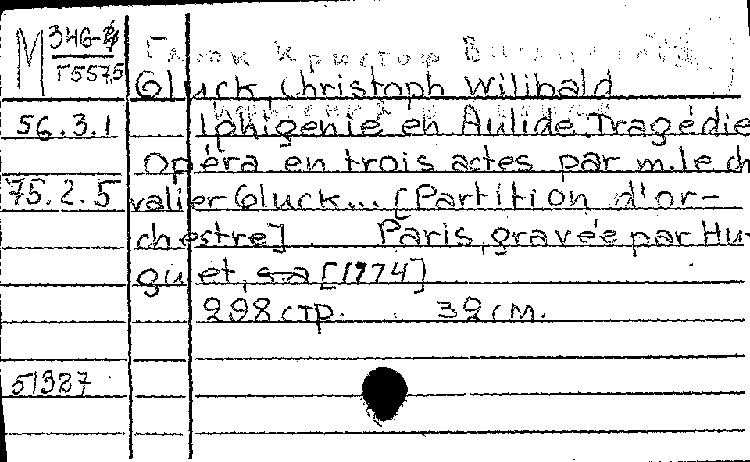 М 346-4
Г5575
Глюк Кристоф
Gluck, Christoph Willibald
56.3.1 Iphigenie en Aulide. Tragédie
Opéra en trois actes par m. le ch
75.2.5 valier Gluck... [Partition d'or-
chestre] Paris, gravée par Hu-
guet, s-a [1774]
298 стр. 32 см.
51327